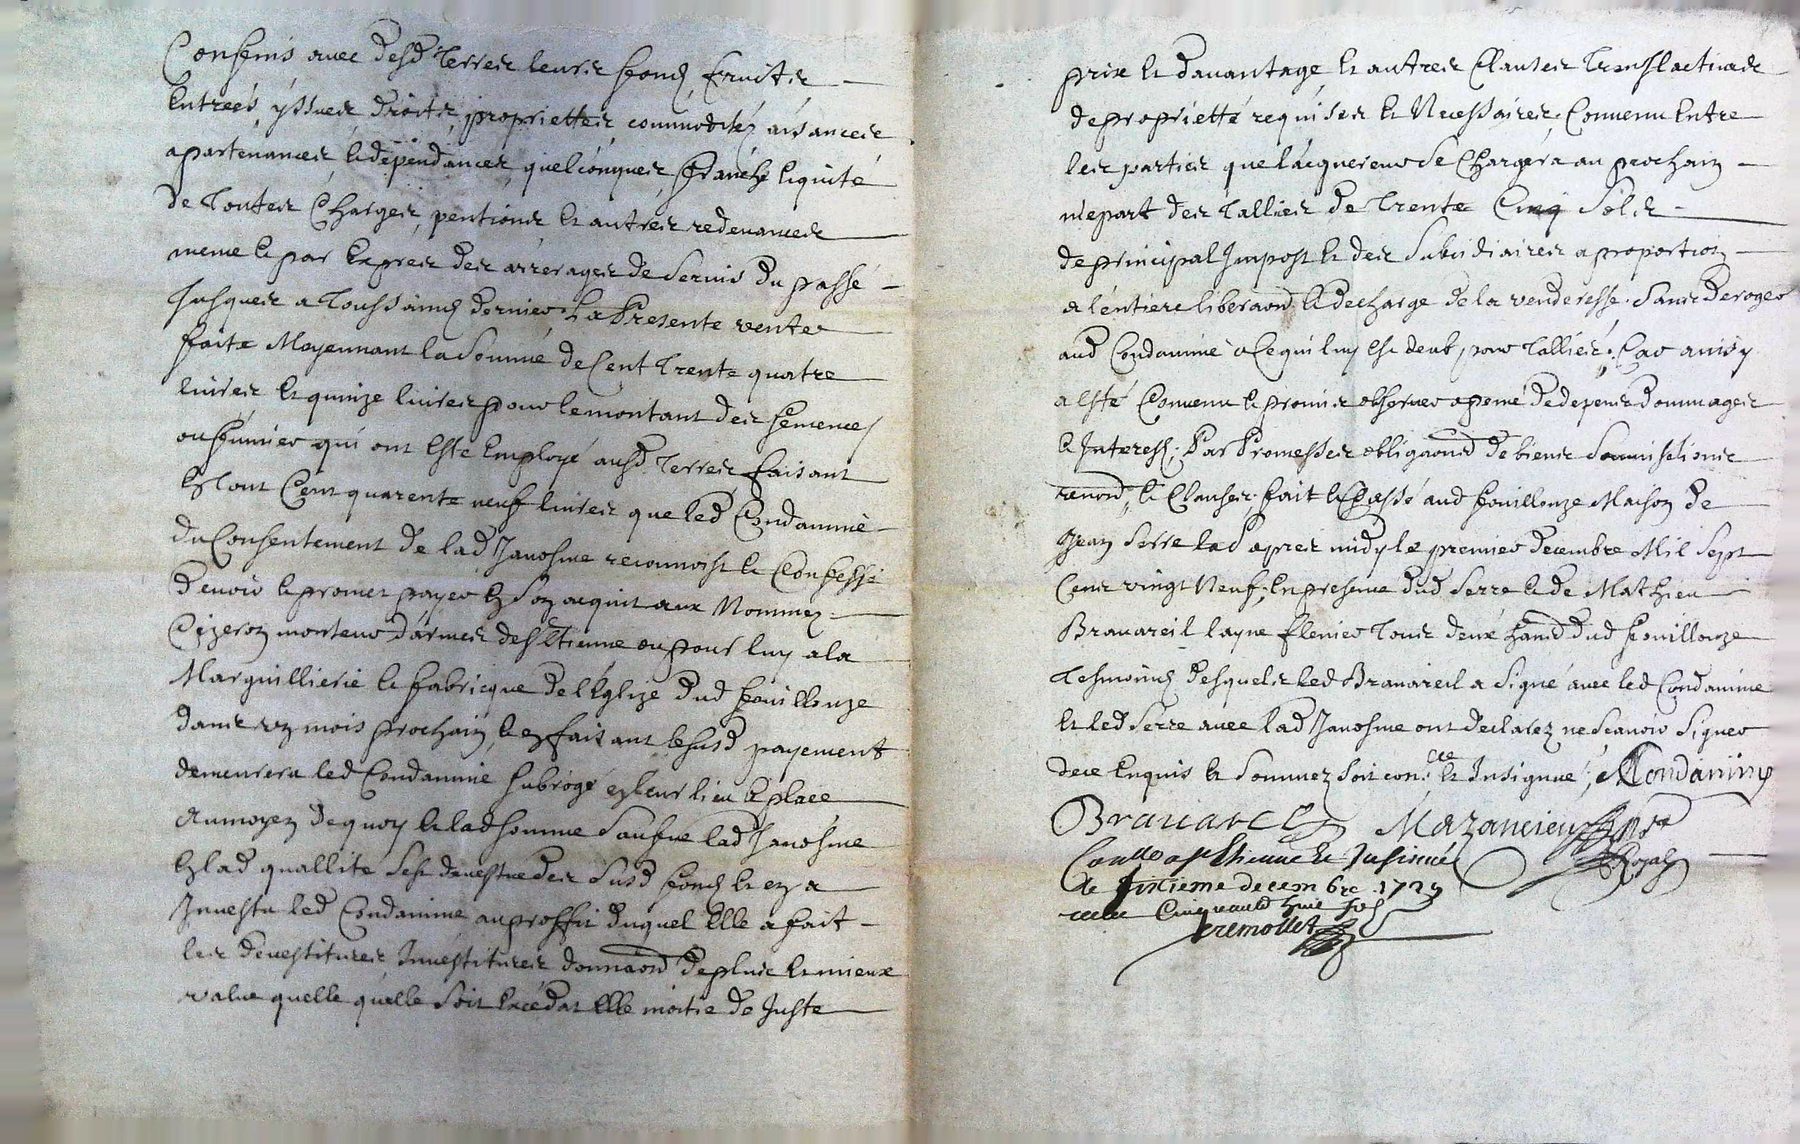 Confins avec desd Terres leurs fonds, fruits
Entrees, yssues droits, propriettes commoditez aisances
apartenances & dependances quelconques, franche & quitte
de Toutes Charges, pentions et autres redevances
meme & par Expres des arrerages de Servis du passé
Jusques a Toussaincts dernier. La Presente vente
faite Moyennant la Somme de Cent Trente quatre
livres Et quinze livres pour le montant des semences
ou fumier qui ont Esté Employé ausd Terres, faisant
En tout Cent quarente neuf livres que led Condamine
du Consentement de lad Janosme reconnoist & Confesse
devoir & promet payer En Son acquit aux Nommez
Cizeron monteur d'armes de St Etienne ou pour luy a la
Marguillierie & fabricque de l'Eglize dud fouillouze
dans un mois prochain, & en faisant lesusd payement
demeurera led Condamine subrogé en leur lieu & place
Aumoyen dequoy & lad somme Sauve lad Janosme
En lad quallité Sest devestue des Susd fonds & en a
Investu led Condamine au proffit duquel Elle a fait
les devestitures Investitures donnaon de plus et mieux
value quelle quelle Soit Excedat Elle moitie de Juste
prix et davantage Et autres Clauses Translatives
de propriétté requises et Necessaires, Convenu Entre
les parties que lacquereur Se Chargera au prochain
mepart des Tallies de Trente Cinq Sols
de principal Impost Et des Subsidiaires a proportion
a léntiere liberaon & decharge de la venderesse. Sans Deroger
aud Condamine a Ce qui luy Est deub, pour Tallies; Car ainsy
a esté Convenu & promis observer a peine de depens dommages
& Interests; Par Promesses obligaons de biens Soumissions
renons, & Clauses, fait & Passé aud fouillouze Maison de
Jean Serre lad apres midy le premier decembre Mil Sept
Cens vingt Neuf, En presence dud Serre & de Mathieu
Bravareil layne Tous deux habns dud fouillouze
Tesmoins desquels led Bravareil a Signé avec led Condamine
Et led Serre avec lad Janosme ont declarez ne Scavoir Signer
dece Enquis & Sommez Soit con.lle et Insignué; MCondaminy
Bravarel Mazancieu Nre Royal
Con.lle a St Etienne & Insinué
Le sixieme decembre 1729
Cinquante huit sols
remollet